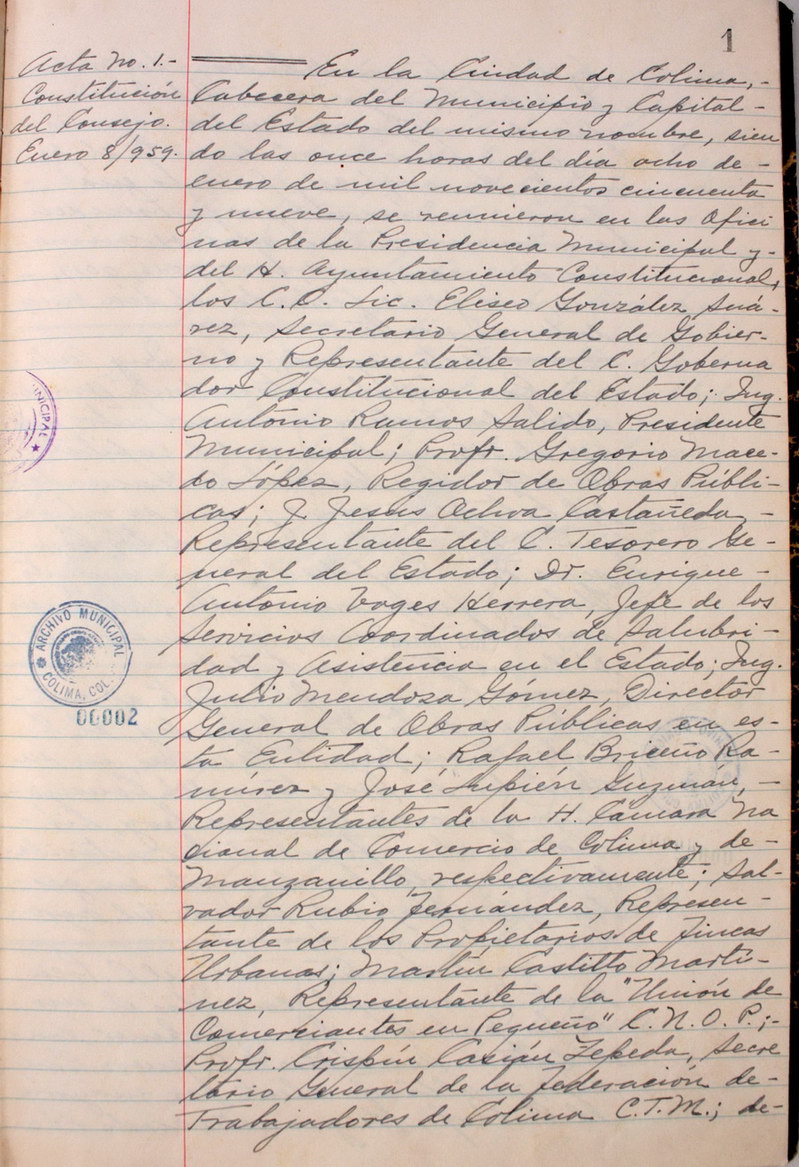 1
Acta No. 1.-
Constitución
del Consejo.
Enero 8/959.
En la Ciudad de Colima,-
Cabecera del Municipio y Capital-
del Estado del mismo nombre, sien
do las once horas del día ocho de-
enero de mil novecientos cincuenta
y nueve, se reunieron en las Ofici
nas de la Presidencia Municipal y-
del H. Ayuntamiento Constitucional,
los C.C. Lic. Eliseo González Suá-
rez, Secretario General de Gobier-
no y Representante del C. Goberna
dor Constitucional del Estado; Ing.
Antonio Ramos Salido, Presidente
Municipal; Profr. Gregorio Mace-
do López, Regidor de Obras Públi-
cas; J. Jesús Ochoa Castañeda,-
Representante del C. Tesorero Ge-
neral del Estado; Dr. Enrique-
Antonio Voges Herrera, Jefe de los
Servicios Coordinados de Salubri-
dad y Asistencia en el Estado; Ing.
Julio Mendoza Gómez, Director
General de Obras Públicas en es-
ta Entidad; Rafael Briceño Ra-
mírez y José Lupién Guzmán,-
Representantes de la H. Cámara Na
cional de Comercio de Colima y de-
Manzanillo, respectivamente; Sal-
vador Rubio Fernández, Represen-
tante de los Propietarios de Fincas
Urbanas; Martín Castillo Martí-
nez, Representante de la "Unión de
Comerciantes en Pequeño" C.N.O.P.;-
Profr. Crispín Casián Zepeda, Secre
tario General de la Federación de-
Trabajadores de Colima C.T.M.; de-
NICIPAL
ARCHIVO MUNICIPAL
COLIMA, COL.
00002